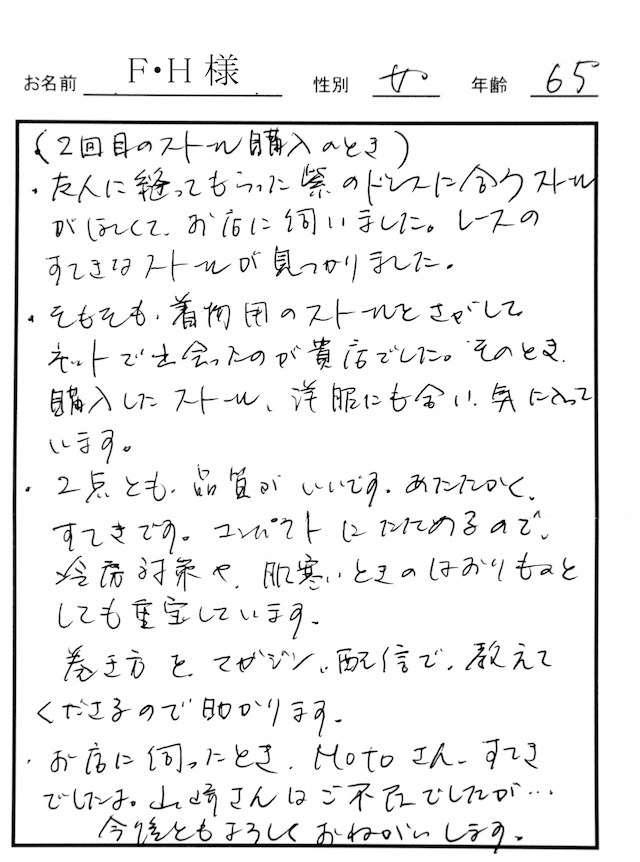 お名前 F・H 様 性別 女 年齢 65
(2回目のストール購入のとき)
・友人に縫ってもらった紫のドレスに合うストール
がほしくて、お店に伺いました。レースの
すてきなストールが見つかりました。
・そもそも、着物用のストールをさがして
ネットで出会ったのが貴店でした。そのとき、
購入したストール、洋服にも合い、気に入って
います。
・2点とも、品質がいいです。あたたかく、
すてきです。コンパクトにたためるので、
冷房対策や、肌寒いときのはおりものと
しても重宝しています。
巻き方を、マガジン、配信で、教えて
くださるので助かります。
・お店に伺ったとき、Motoさん、すてき
でしたよ。山崎さんはご不在でしたが…
今後ともよろしくおねがいします。